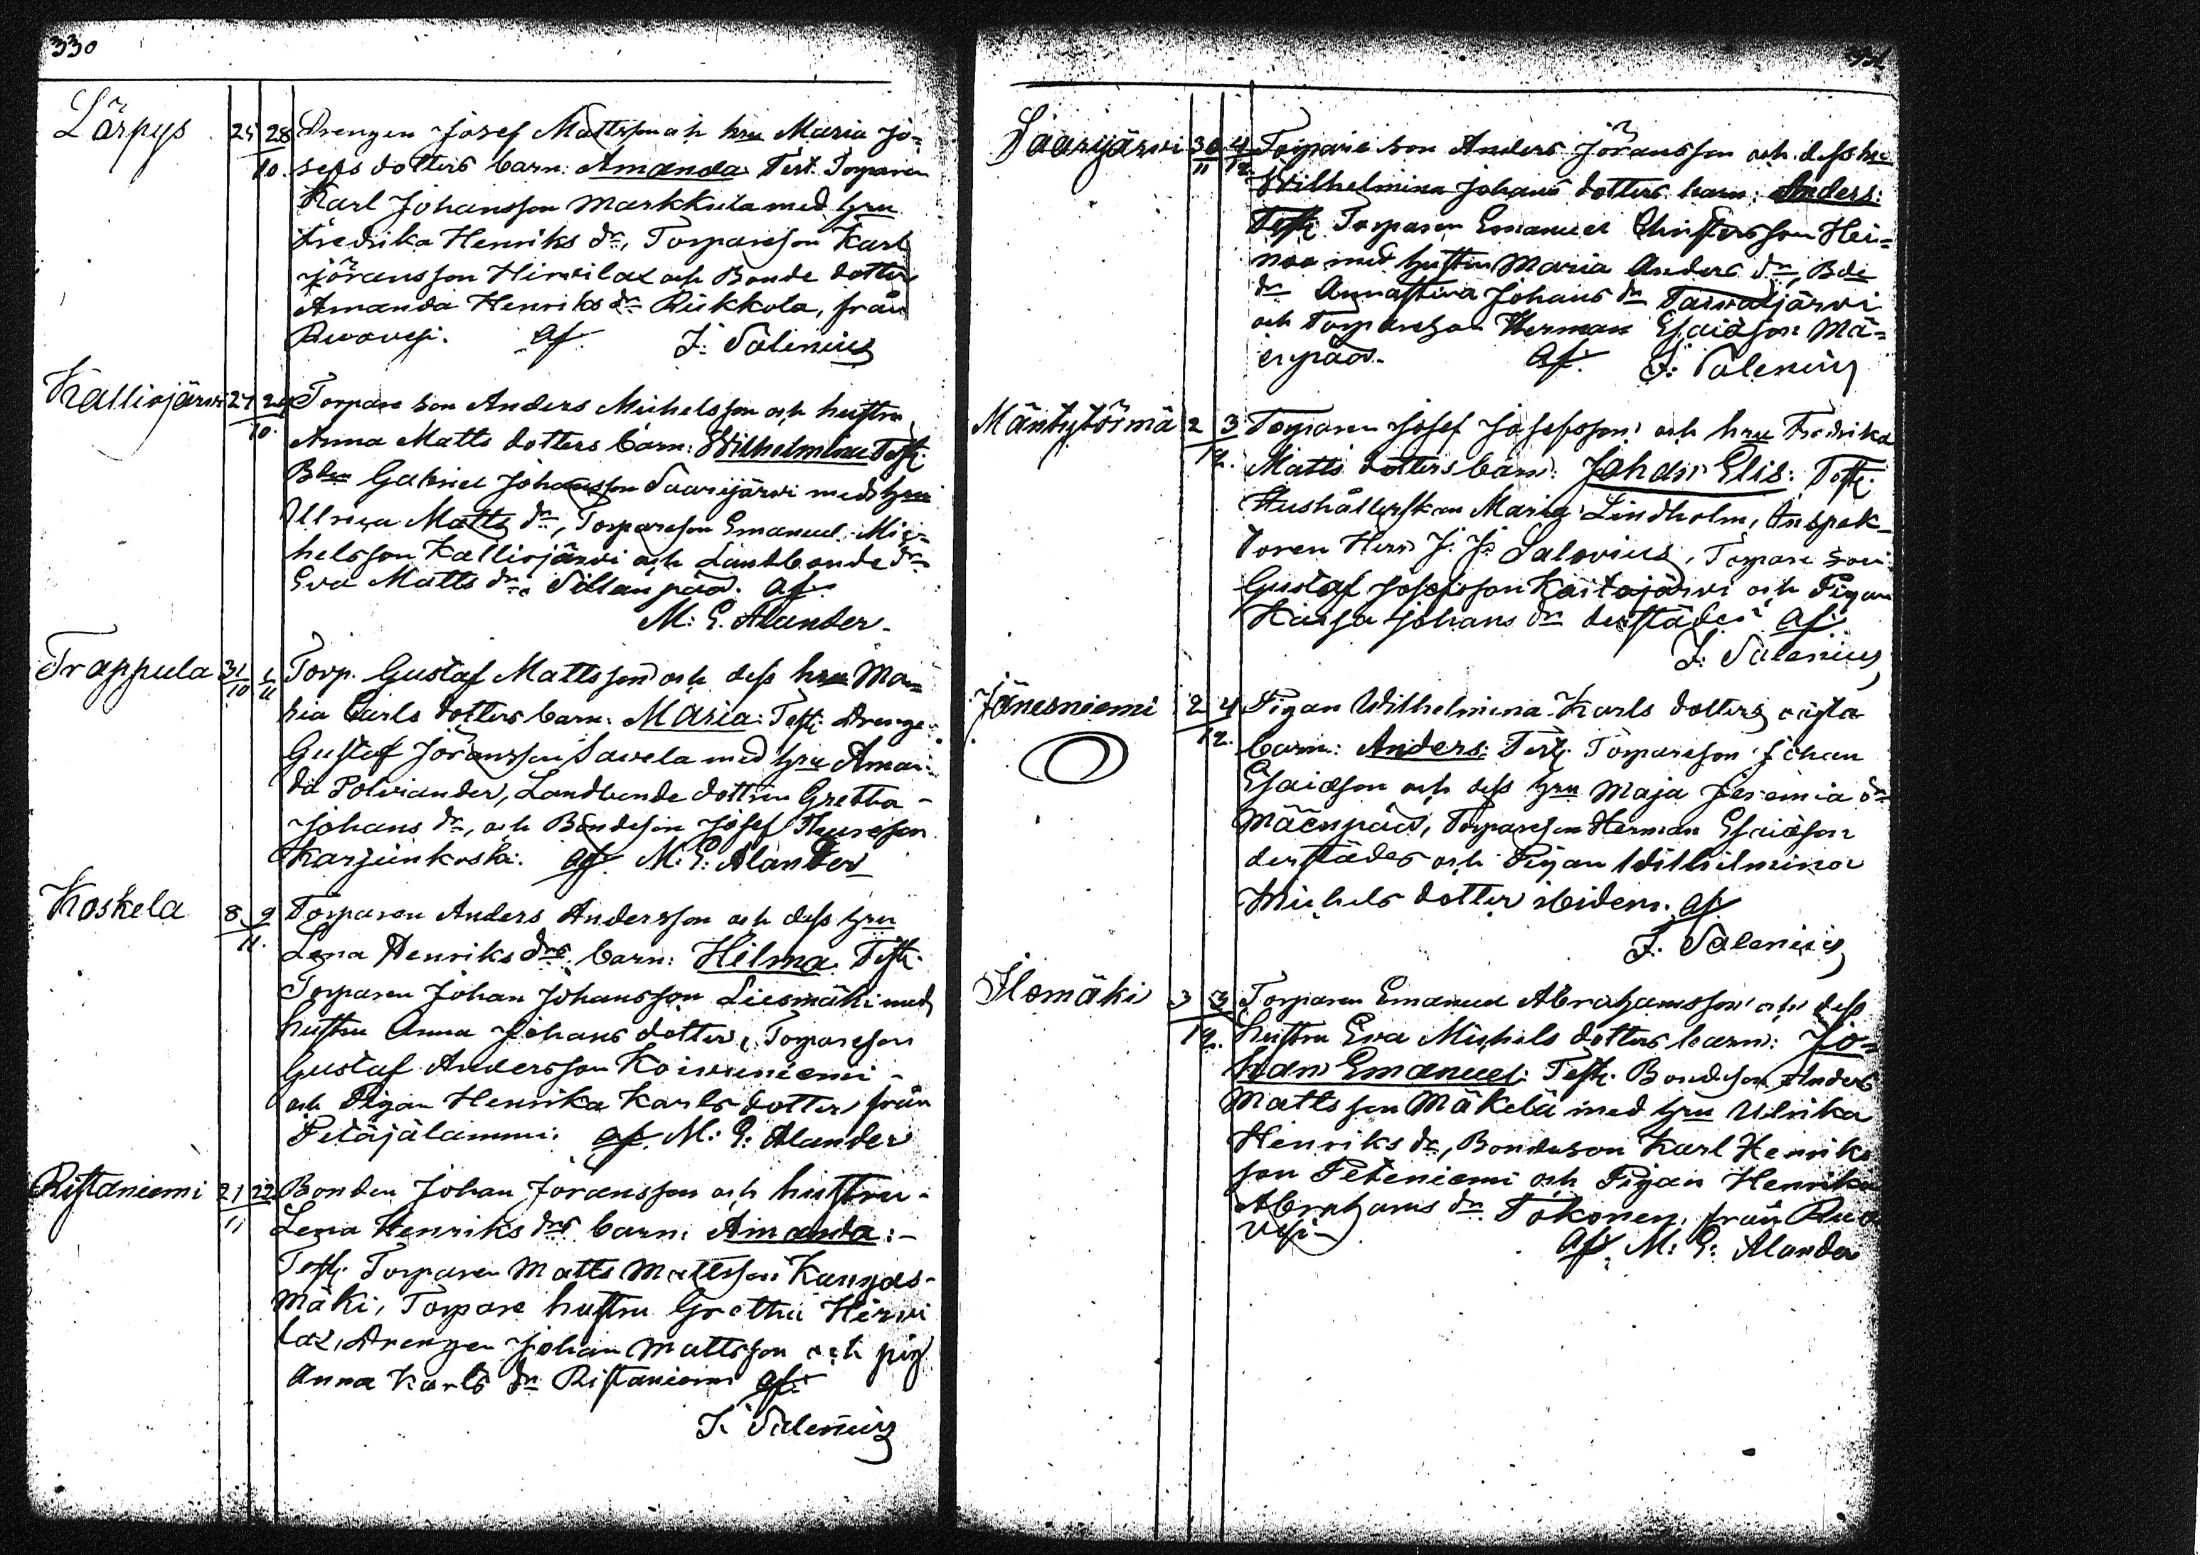 330
Lärpys 25 28 Drengen Josef Mattsson och hru Maria Jo=
10. sefs dotters barn: Amanda Test. Torparen
Karl Johansson Markkula med hru
Fredrika Henriks dr, Torpareson Karl
Jöransson Hirvilax och Bonde dotter
Amanda Henriks dr Riikkola, från
Ruovesi. af J. Salenius
Kalliojärvi 27 29 Torpare son Anders Michelsson och hustru
10. Anna Matts dotters barn: Wilhelmina Test:
Bden Gabriel Johansson Saarijärvi med hru
Ulrica Matts dr, Torpareson Emanuel Mic=
helsson Kalliojärvi och Landbonde dr
Eva Matts dr Sillanpää. af
M: G. Alander.
Trappula 31/10 1/11 Torp. Gustaf Mattsson och dess hru Ma=
ria Carls dotters barn: Maria: Test: Drenge
Gustaf Jöransson Savela med hru Aman=
da Polviander, Landbonde dottren Gretha
Johans dr, och Bondeson Josef Thuresson
Karjunkoski. af M: G: Alander
Koskela 8 9 Torparen Anders Andersson och dess hru
11. Lena Henriks drs barn: Hilma Test:
Torparen Johan Johansson Liesmäki med
hustru Anna Johans dotter, Torpareson
Gustaf Andersson Koivuniemi
och Pigan Henrika Karls dotter från
Petäjälammi: af M: G: Alander
Ristaniemi 21 22 Bonden Johan Jöransson och hustru
11 Lena Henriks drs barn: Amanda:
Test: Torparen Matts Mattsson Kangas=
mäki, Torpare hustru Gretha Hirvi
lax, Drengen Johan Mattsson och pig
Anna Karls dr Ristaniemi af:
J. Salenius
331
Saarijärvi 30 4 Torpare son Anders Jöransson och dess hru
11 12 Wilhelmina Johans dotters barn: Anders:
Test: Torparen Emanuel Christersson Hei=
noo med hustru Maria Anders dr, Bde
dr Annastina Johans dr Tarvasjärvi
och Torpareson Herman Esaiasson Mä=
enpää. af J: Salenius
Mäntytörmä 2 3 Torparen Josef Josefsson och hru Fredrika
12. Matts dotters barn: Johan Elis: Test:
Hushållerskan Maria Lindholm, Inspek=
toren Herr J. J. Salovius, Torpare son
Gustaf Josefsson Kaitajärvi och Pigan
Kaisa Johans dr derstädes af
J. Salenius
Jänesniemi 2 4 Pigan Wilhelmina Karls dotters oägta
12. barn: Anders: Test: Torpareson Johan
Esaiasson och dess hru Maja Jeremia dr
Mäenpää, Torpareson Herman Esaiasson
derstädes och Pigan Wilhelmina
Michels dotter ibidem. af
J. Salenius
Ilomäki 3 3 Torparen Emanuel Abrahamsson och dess
12. hustru Eva Michels dotters barn: Jo=
han Emanuel: Test: Bondeson Anders
Mattsson Mäkelä med hru Ulrika
Henriks dr, Bondeson Karl Henriks
son Peteniemi och Pigan Henrika
Abrahams dr Tokonen, från Ruo
vesi
af M: G: Alander